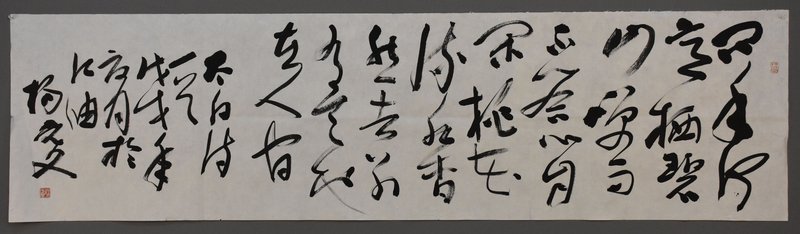 问余何
意栖碧
山笑而
不答心自
闲桃花
流水杳
然去别
有天地
非人间
太白诗
一首
戊戌年
月於
江油
杨文